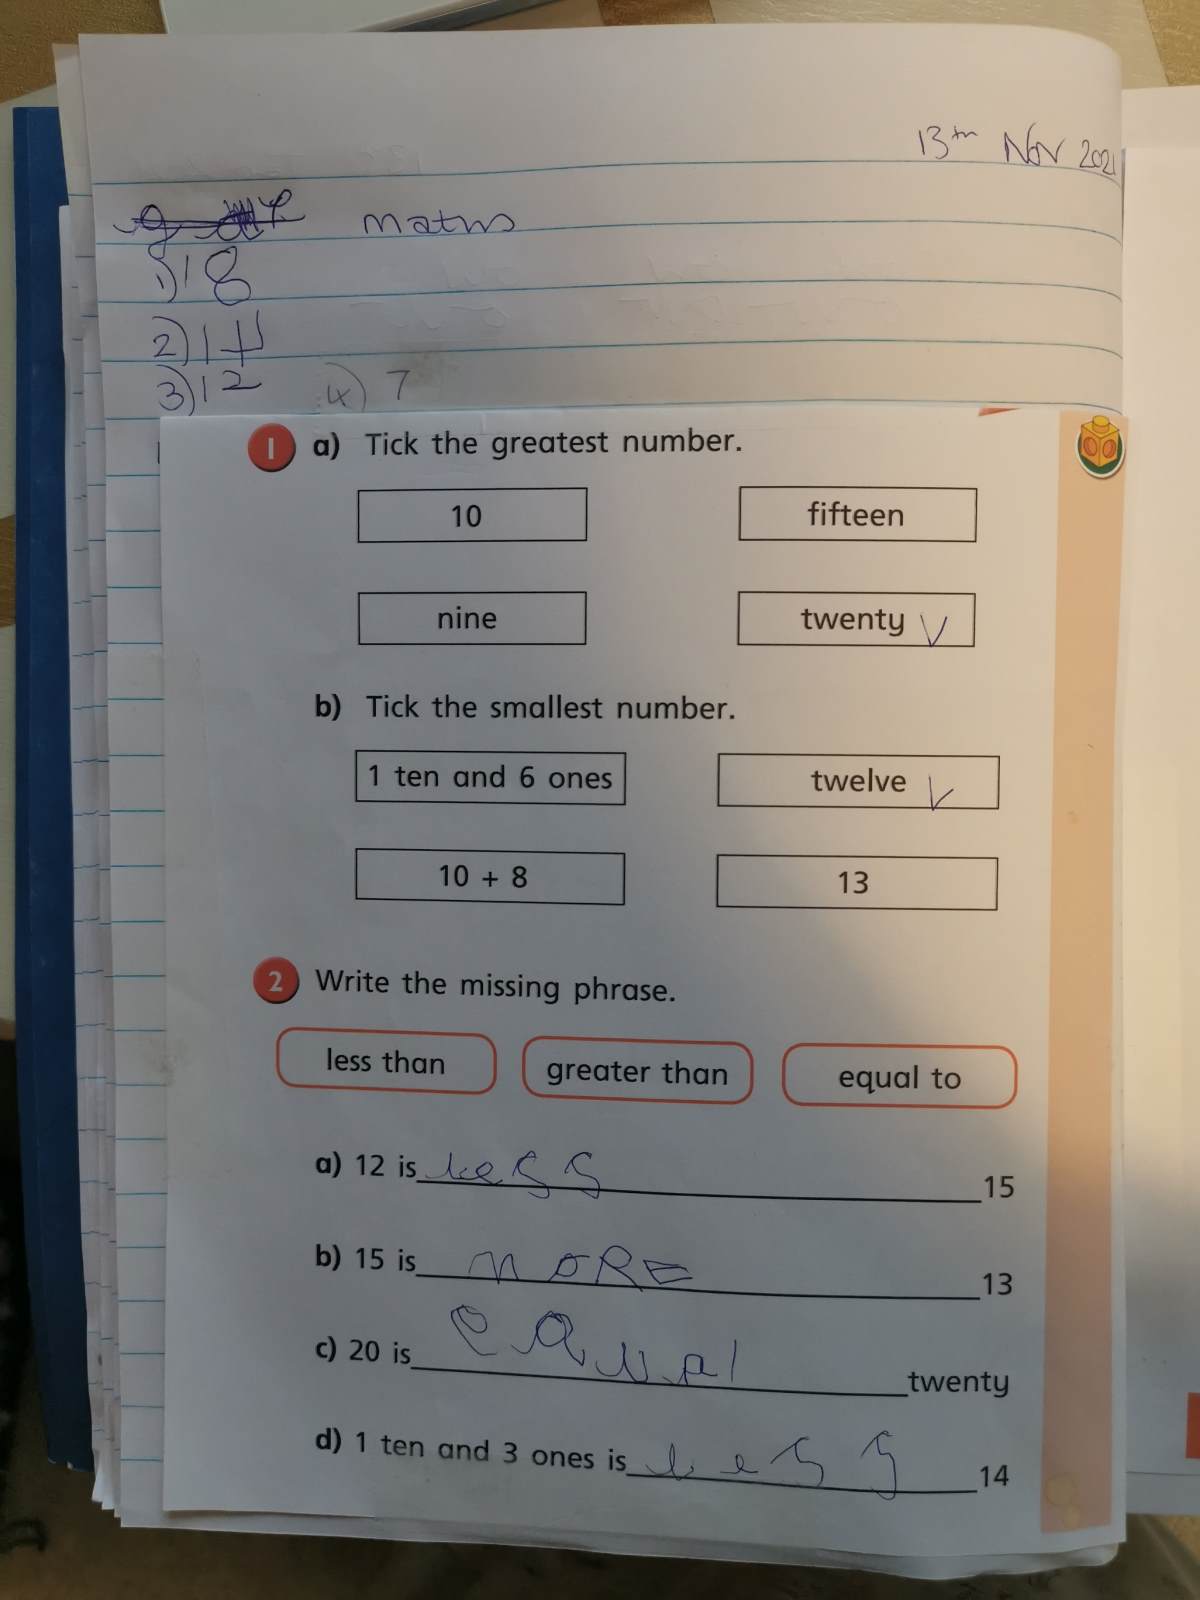 13th Nov 2021
maths
1) 18
2) 14
3) 12 4) 7
1 a) Tick the greatest number.
10 fifteen
nine twenty
b) Tick the smallest number.
1 ten and 6 ones twelve
10 + 8 13
2 Write the missing phrase.
less than greater than equal to
a) 12 is less 15
b) 15 is MORE 13
c) 20 is equal twenty
d) 1 ten and 3 ones is less 14